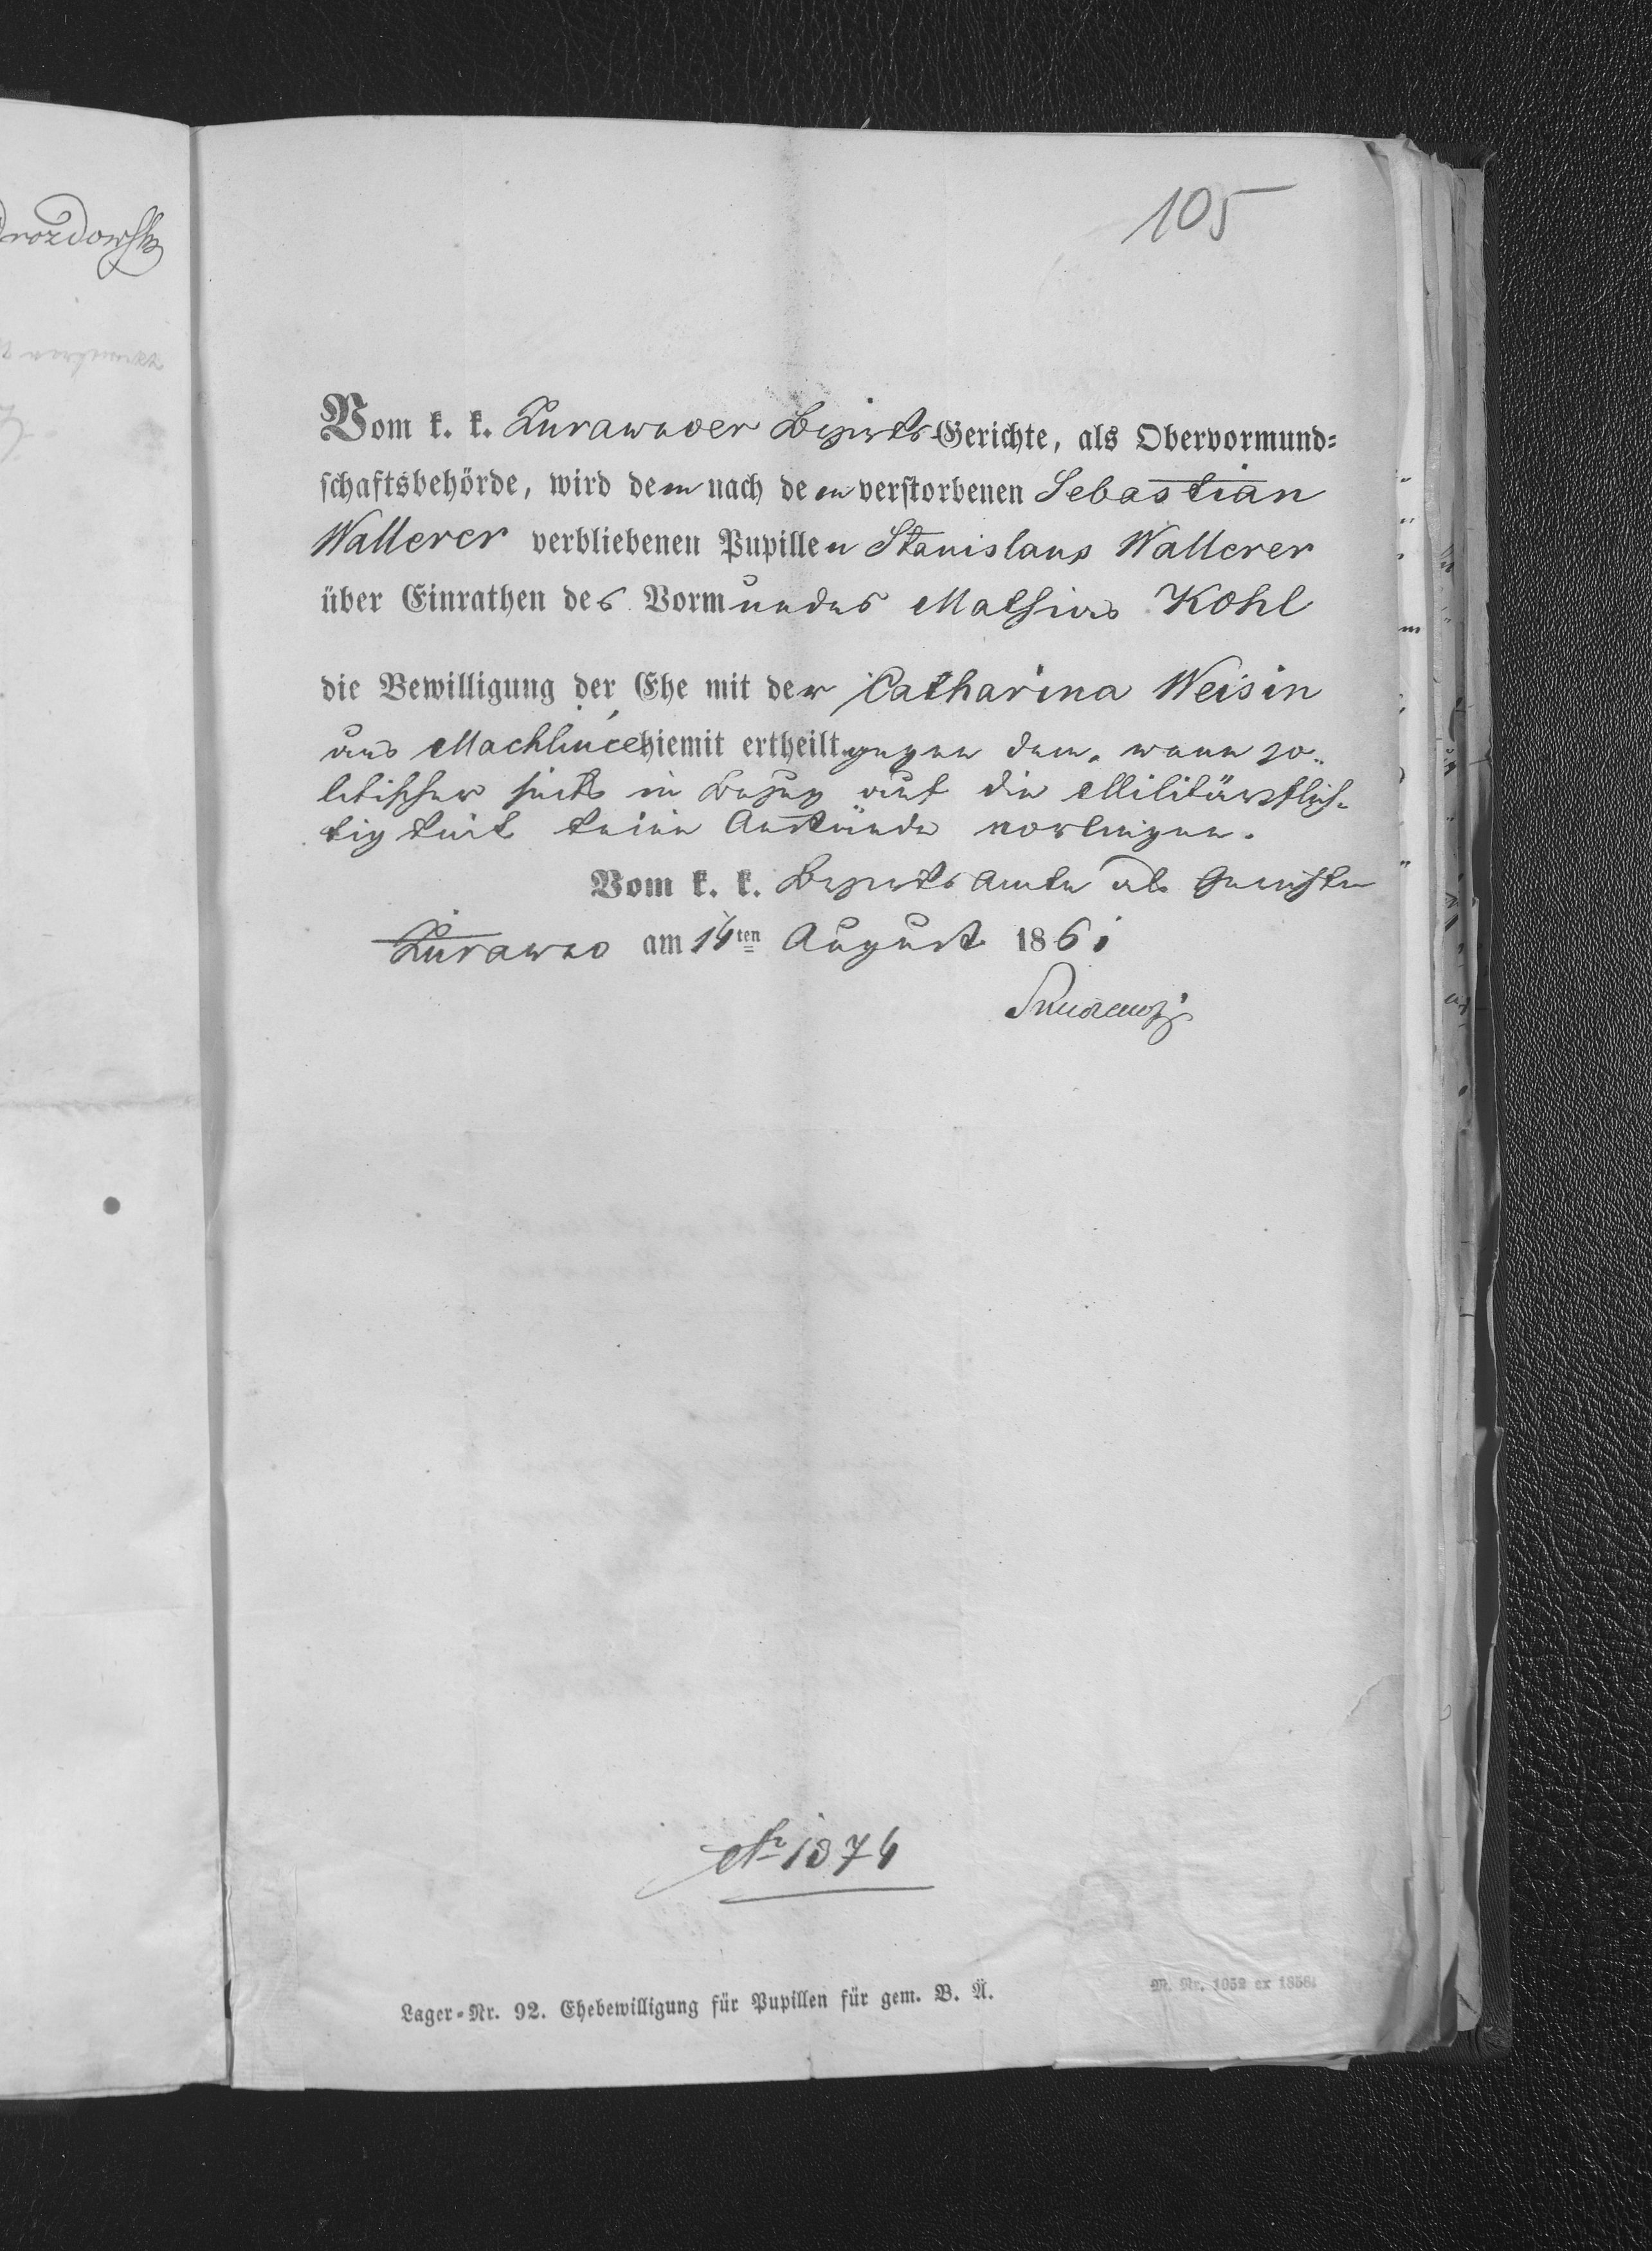 105
Vom k. k. Żurawnoer Bezirks Gerichte, als Obervormund=
schaftsbehörde, wird dem nach dem verstorbenen Sebastian
Wallerer verbliebenen Pupillen Stanislaus Wallerer
über Einrathen des Vormundes Mathias Kohl
die Bewilligung der Ehe mit der Catharina Weisin
aus Machliniec hiemit ertheilt gegen dem, wenn po=
litischer seits in Bezug auf die Militärpflich=
tigkeit keine Anstände vorliegen.
Vom k. k. Bezirks Amte als Gerichte
Żurawno am 14ten August 1861
Nr 1874
Lager=Nr. 92. Ehebewilligung für Pupillen für gem. B. Ä.
M. Nr. 1052 ex 1858.